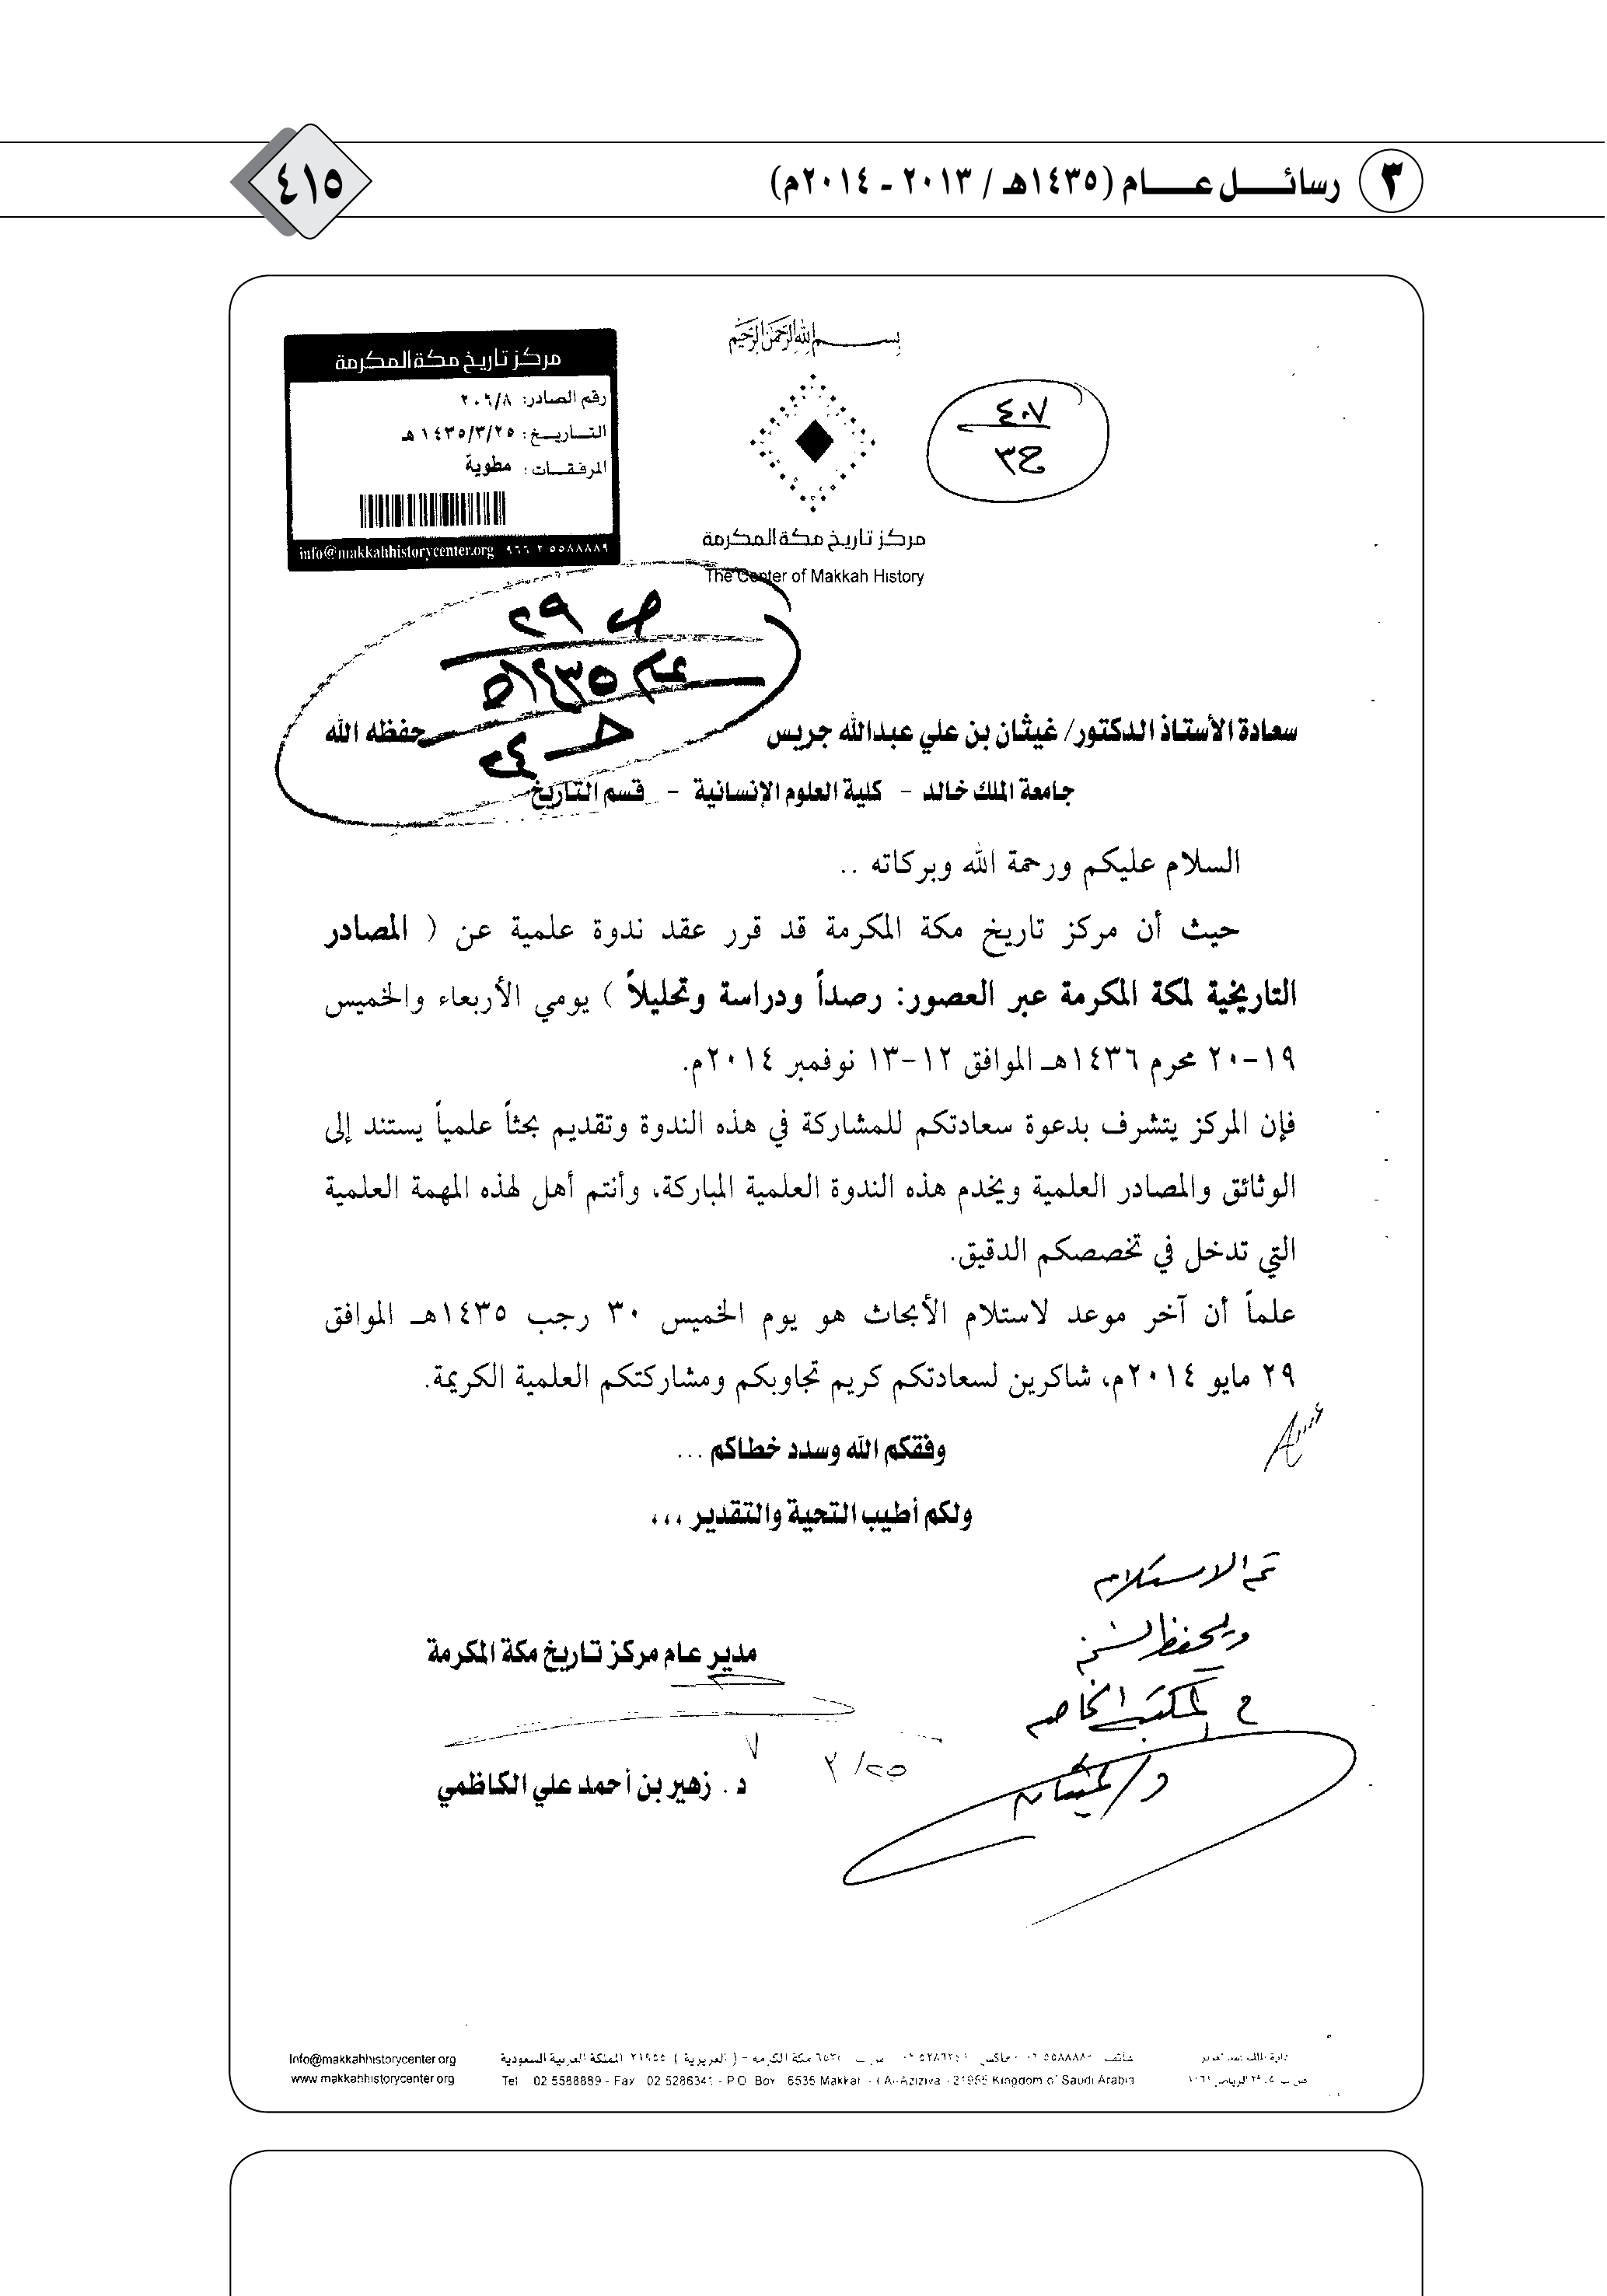 ٣ رسائل عام (١٤٣٥هـ / ٢٠١٣ - ٢٠١٤م)
٤١٥
بسم الله الرحمن الرحيم
مركز تاريخ مكة المكرمة
رقم الصادر: ٢٠٦/٨
التاريخ: ١٤٣٥/٣/٢٥هـ
المرفقات: مطوية
info@makkahhistorycenter.org ٩٦٦ ٢ ٥٥٨٨٨٨٩
٤٠٧
ح٣
مركز تاريخ مكة المكرمة
The Center of Makkah History
ص ٢٩
عام ١٤٣٥هـ
سعادة الأستاذ الدكتور/ غيثان بن علي عبدالله جريس حفظه الله
جامعة الملك خالد - كلية العلوم الإنسانية - قسم التاريخ
السلام عليكم ورحمة الله وبركاته ..
حيث أن مركز تاريخ مكة المكرمة قد قرر عقد ندوة علمية عن ( المصادر
التاريخية لمكة المكرمة عبر العصور: رصداً ودراسة وتحليلاً ) يومي الأربعاء والخميس
١٩-٢٠ محرم ١٤٣٦هـ الموافق ١٢-١٣ نوفمبر ٢٠١٤م.
فإن المركز يتشرف بدعوة سعادتكم للمشاركة في هذه الندوة وتقديم بحثاً علمياً يستند إلى
الوثائق والمصادر العلمية ويخدم هذه الندوة العلمية المباركة، وأنتم أهل لهذه المهمة العلمية
التي تدخل في تخصصكم الدقيق.
علماً أن آخر موعد لاستلام الأبحاث هو يوم الخميس ٣٠ رجب ١٤٣٥هـ الموافق
٢٩ مايو ٢٠١٤م، شاكرين لسعادتكم كريم تجاوبكم ومشاركتكم العلمية الكريمة.
وفقكم الله وسدد خطاكم ...
ولكم أطيب التحية والتقدير ،،،
تم الاستلام
ويحفظ
المكتب الخاص
مدير عام مركز تاريخ مكة المكرمة
د . زهير بن أحمد علي الكاظمي
Info@makkahhistorycenter org
www makkahhistorycenter org
Tel 02 5588889 - Fax 02 5286341 - P.O. Box 6535 Makkah - (Al-Aziziya) 21955 Kingdom of Saudi Arabia